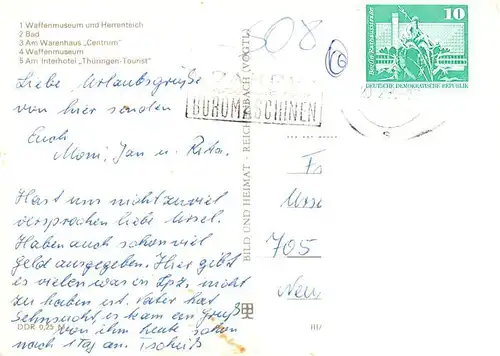 1 Waffenmuseum und Herrenteich
2 Bad
3 Am Warenhaus „Centrum"
4 Waffenmuseum
5 Am Interhotel „Thüringen-Tourist"
508
16
10
Berlin-Rathausstrasse
DEUTSCHE DEMOKRATISCHE REPUBLIK
BÜROMASCHINEN
Liebe Urlaubsgrüße
von hier senden
Euch
Moni, Jan u. Rita.
Hast uns nicht zuviel
versprochen liebe Ursel.
Haben auch schon viel
Geld ausgegeben. Hier gibt
es vieles was in Lpz. nicht
zu haben ist. Vater hat
Sehnsucht, es kam ein Gruß
von ihm heute schon
nach 1 Tag an. Tschüß
BILD UND HEIMAT · REICHENBACH (VOGTL)
Urse
705
Neu
DDR 0,25 M
III/